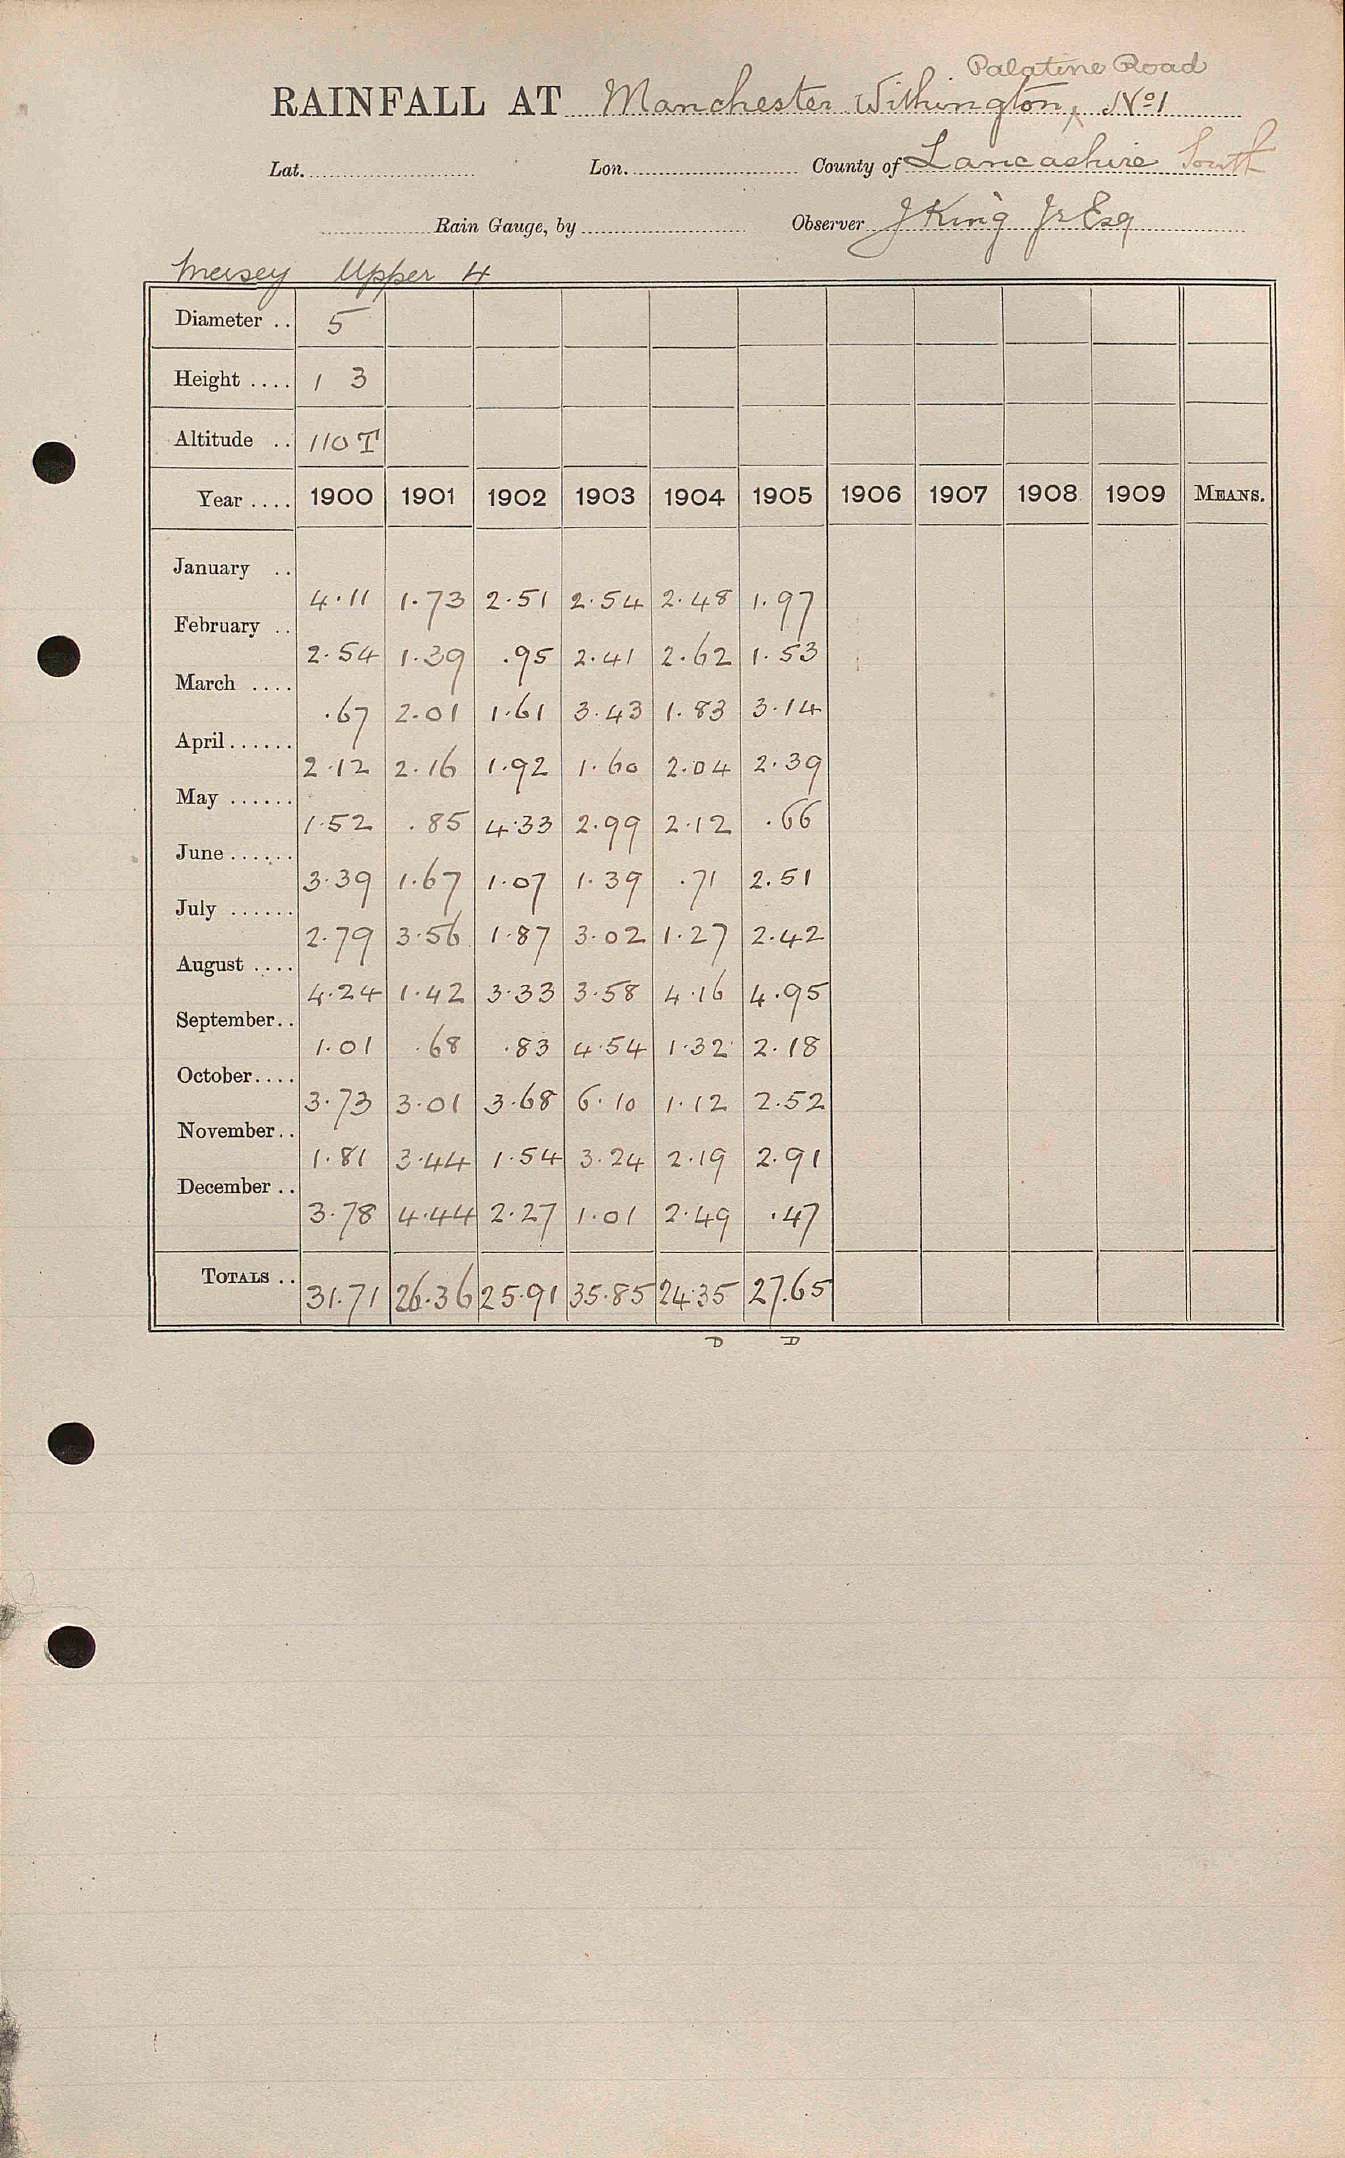 Palatine Road
RAINFALL AT Manchester Withington, No 1
Lat. Lon. County of Lancashire South
Rain Gauge, by Observer J King Jr Esq
Mersey Upper 4
Diameter .. 5
Height .... 1 3
Altitude .. 110 T
Year .... 1900 1901 1902 1903 1904 1905 1906 1907 1908 1909 MEANS.
January .. 4.11 1.73 2.51 2.54 2.48 1.97
February .. 2.54 1.39 .95 2.41 2.62 1.53
March .... .67 2.01 1.61 3.43 1.83 3.14
April ...... 2.12 2.16 1.92 1.60 2.04 2.39
May ...... 1.52 .85 4.33 2.99 2.12 .66
June ...... 3.39 1.67 1.07 1.39 .71 2.51
July ...... 2.79 3.56 1.87 3.02 1.27 2.42
August .... 4.24 1.42 3.33 3.58 4.16 4.95
September.. 1.01 .68 .83 4.54 1.32 2.18
October.... 3.73 3.01 3.68 6.10 1.12 2.52
November.. 1.81 3.44 1.54 3.24 2.19 2.91
December .. 3.78 4.44 2.27 1.01 2.49 .47
TOTALS .. 31.71 26.36 25.91 35.85 24.35 27.65
D D